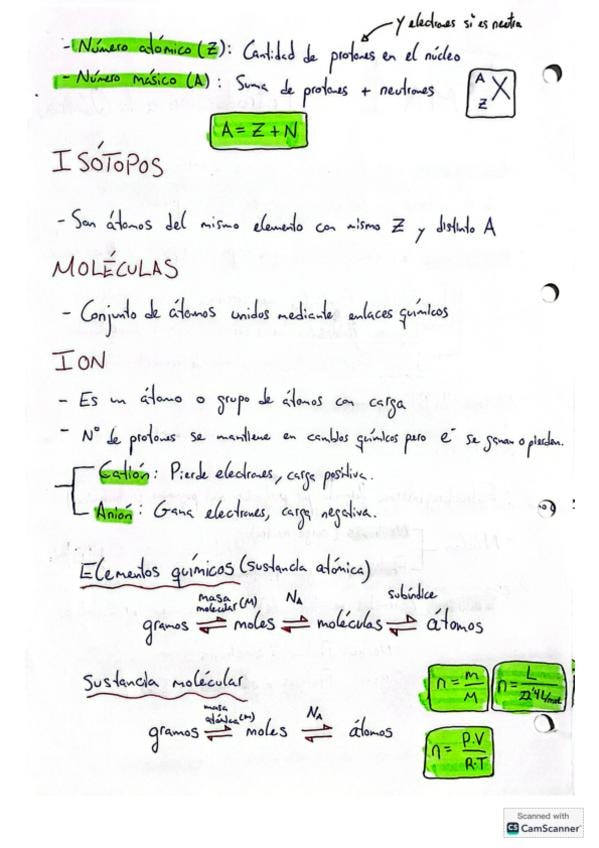 Y electrones si es neutra
- Número atómico (Z): Cantidad de protones en el núcleo
- Número másico (A): Suma de protones + neutrones
A
Z X
A = Z + N
ISÓTOPOS
- Son átomos del mismo elemento con mismo Z y distinto A
MOLÉCULAS
- Conjunto de átomos unidos mediante enlaces químicos
ION
- Es un átomo o grupo de átomos con carga
- Nº de protones se mantiene en cambios químicos pero e⁻ se ganan o pierden.
Catión: Pierde electrones, carga positiva.
Anión: Gana electrones, carga negativa.
Elementos químicos (sustancia atómica)
masa molecular (M) NA subíndice
gramos ⇌ moles ⇌ moléculas ⇌ átomos
Sustancia molécular
n = m/M n = L/22'4 L/mol
masa atómica (M) NA
gramos ⇌ moles ⇌ átomos
n = P.V/R.T
Scanned with
CS CamScanner